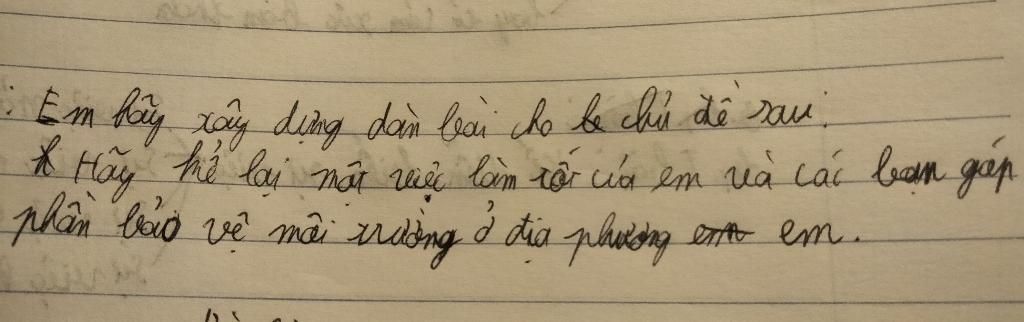 : Em hãy xây dựng dàn bài cho chủ đề sau:
Hãy kể lại một việc làm tốt của em và các bạn góp
phần bảo vệ môi trường ở địa phương em em.